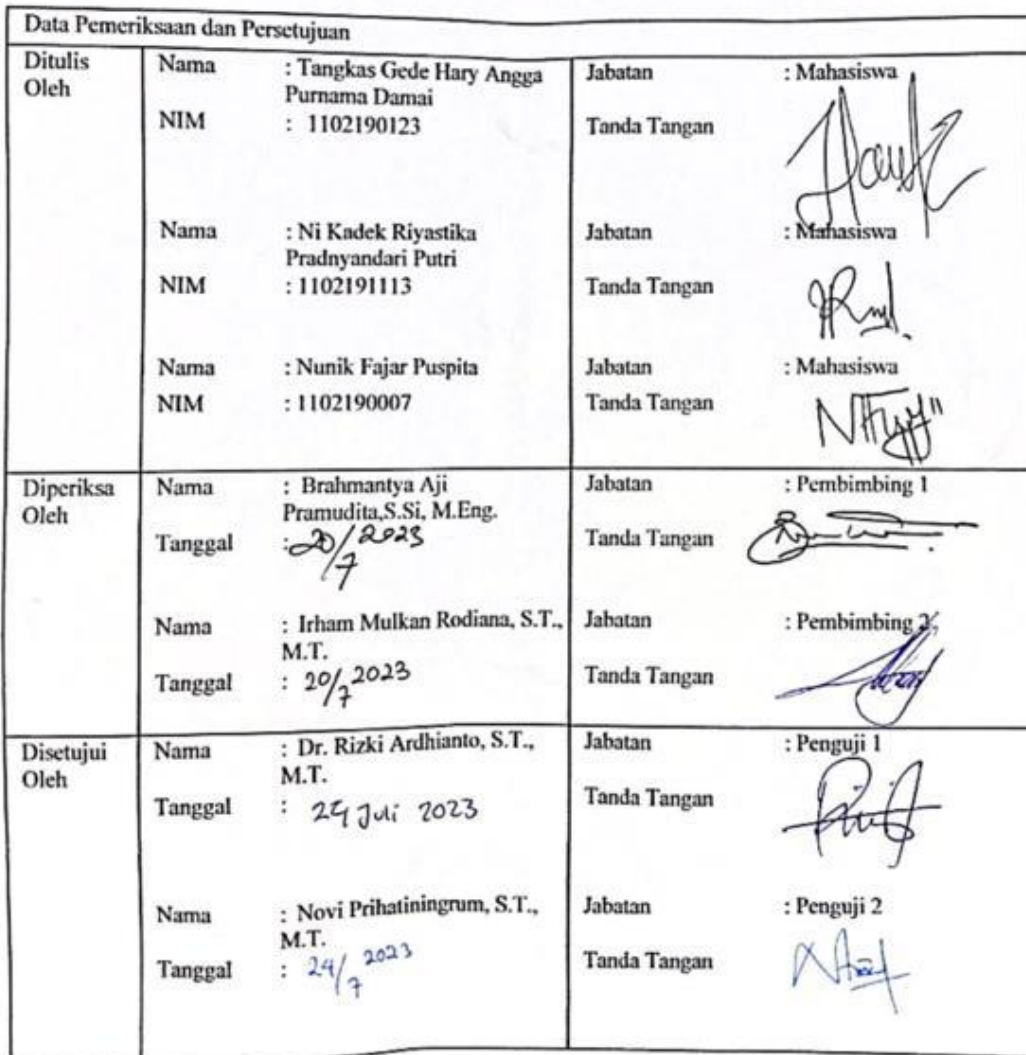 Data Pemeriksaan dan Persetujuan
Ditulis Oleh
Nama : Tangkas Gede Hary Angga Purnama Damai
Jabatan : Mahasiswa
NIM : 1102190123
Tanda Tangan
Nama : Ni Kadek Riyastika Pradnyandari Putri
Jabatan : Mahasiswa
NIM : 1102191113
Tanda Tangan
Nama : Nunik Fajar Puspita
Jabatan : Mahasiswa
NIM : 1102190007
Tanda Tangan
Diperiksa Oleh
Nama : Brahmantya Aji Pramudita,S.Si, M.Eng.
Jabatan : Pembimbing 1
Tanggal : 20/7 2023
Tanda Tangan
Nama : Irham Mulkan Rodiana, S.T., M.T.
Jabatan : Pembimbing 2
Tanggal : 20/7 2023
Tanda Tangan
Disetujui Oleh
Nama : Dr. Rizki Ardhianto, S.T., M.T.
Jabatan : Penguji 1
Tanggal : Juli 2023
Tanda Tangan
Nama : Novi Prihatiningrum, S.T., M.T.
Jabatan : Penguji 2
Tanggal : 24/7 2023
Tanda Tangan